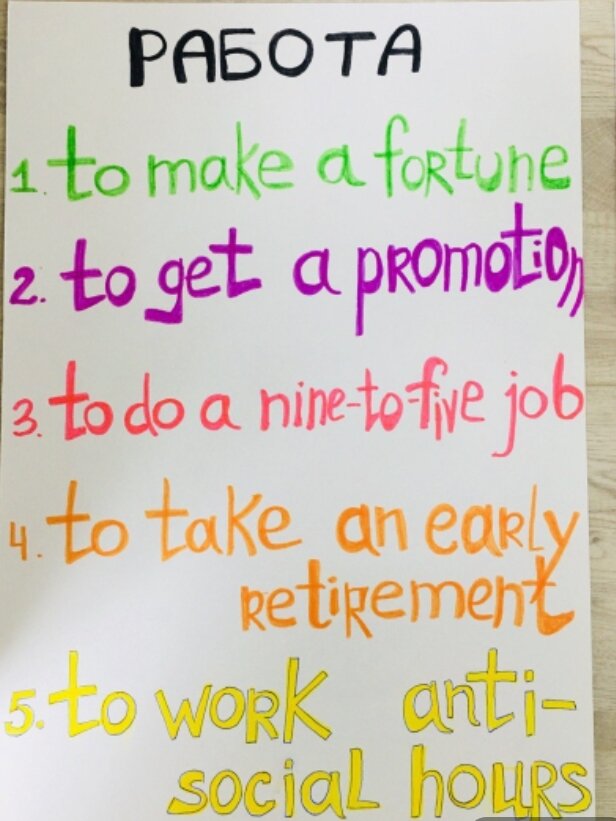 РАБОТА
1. to make a fortune
2. to get a promotion
3. to do a nine-to-five job
4. to take an early
retirement
5. to work anti-
social hours